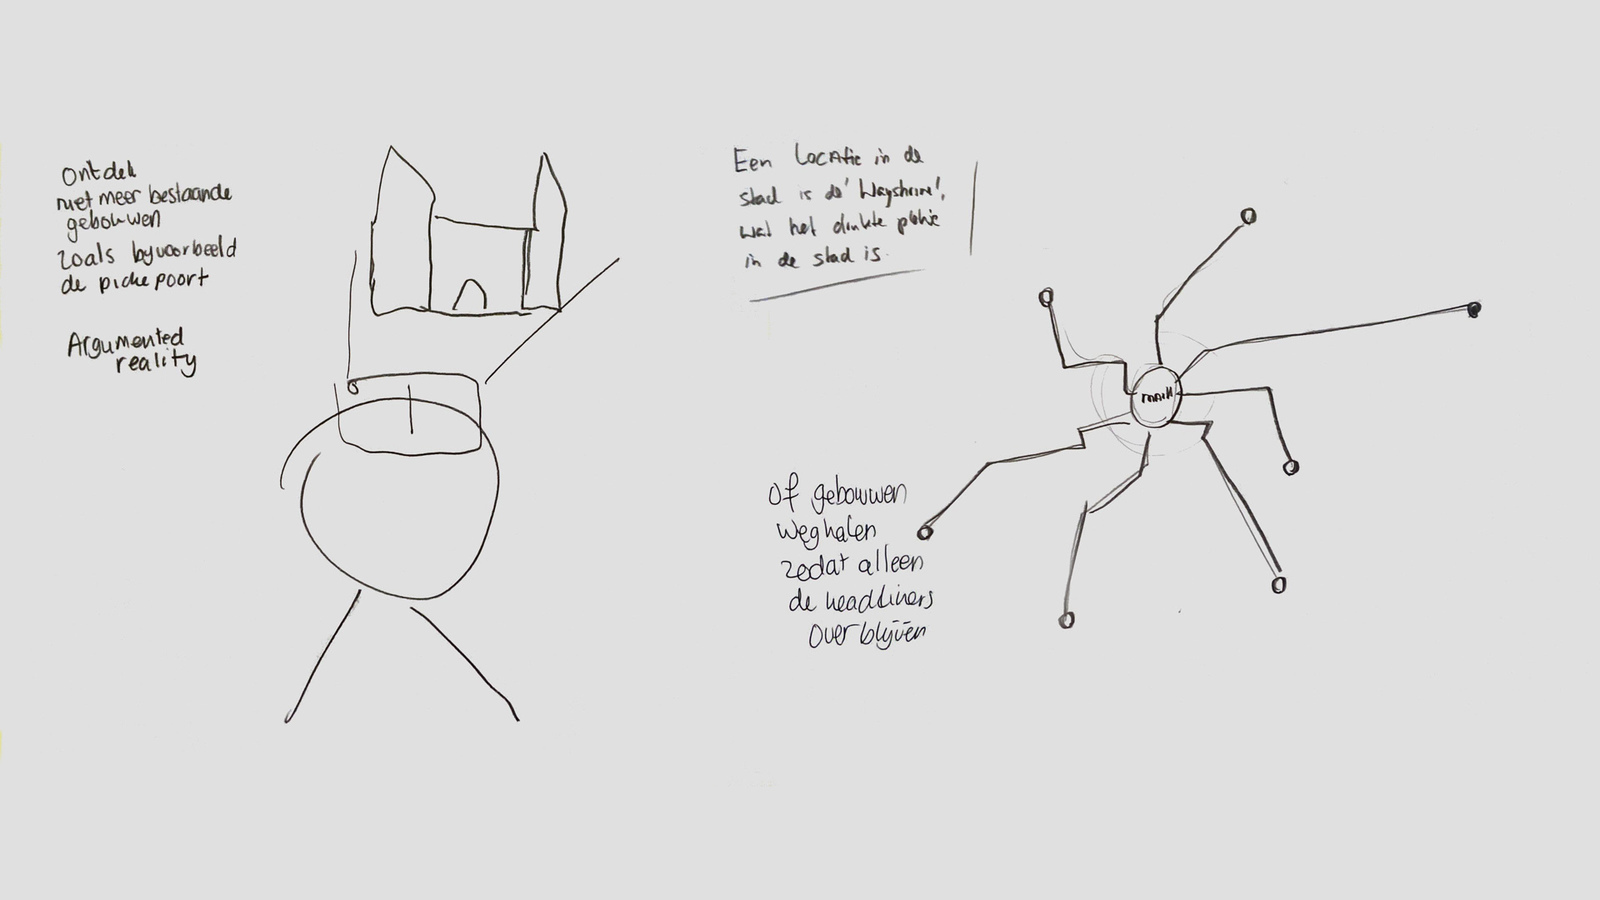 Ontdek
niet meer bestaande
gebouwen
zoals bijvoorbeeld
de piekepoort
Argumented
reality
Een Locatie in de
stad is de 'Wayshrine',
wat het drukte plekje
in de stad is.
Of gebouwen
weghalen
zodat alleen
de headliners
overblijven